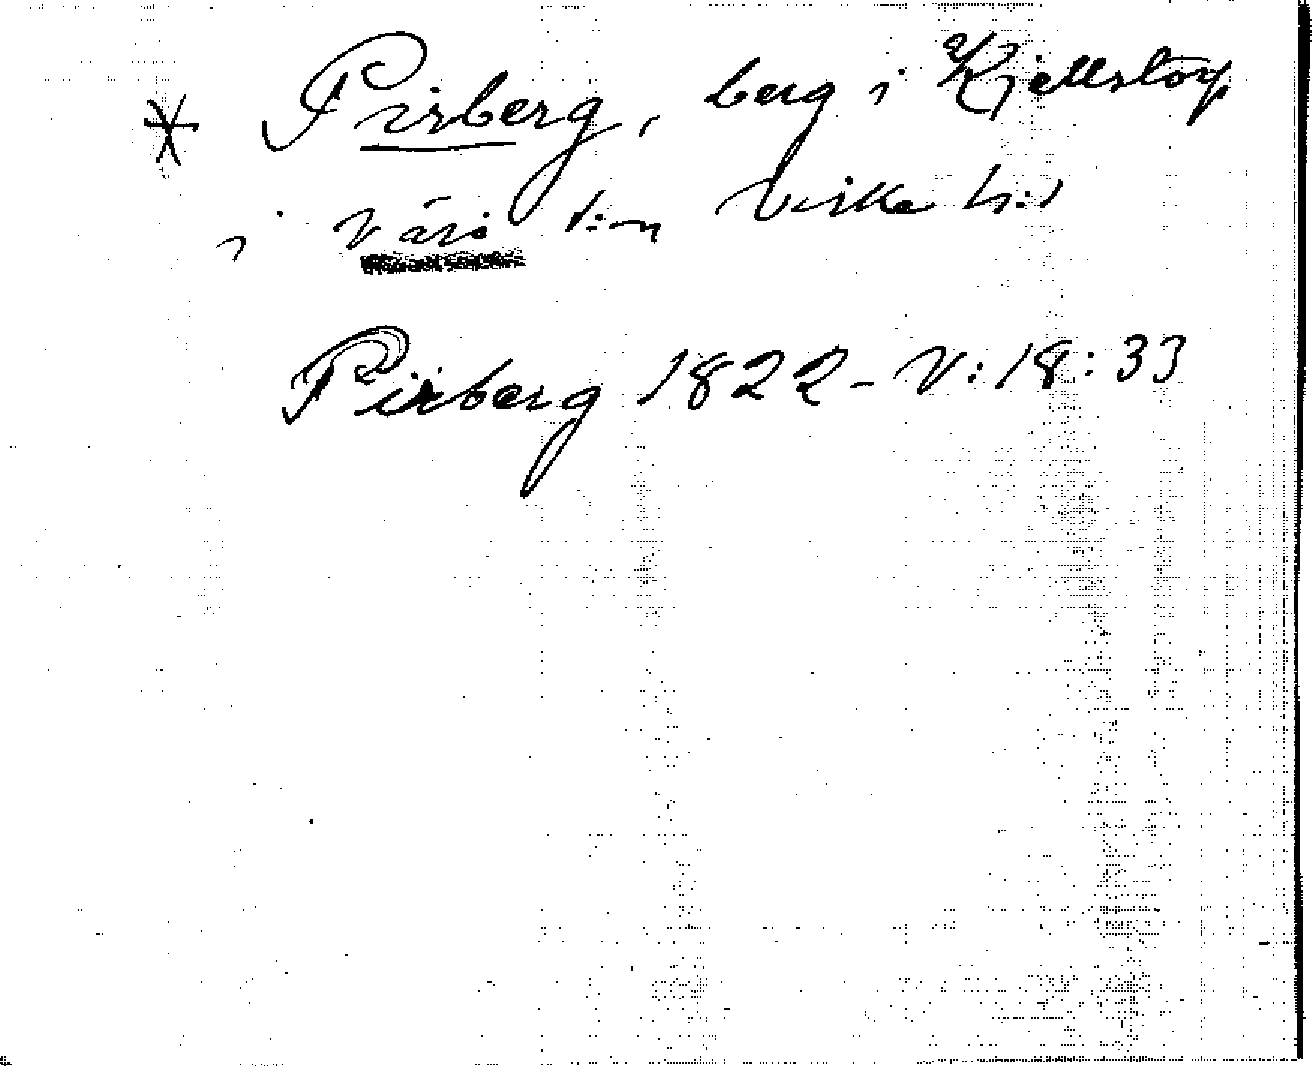 * Pirberg, berg i Kjellstorp
i Värö s:n Viske h:d
Pirberg 1822 - V:18:33